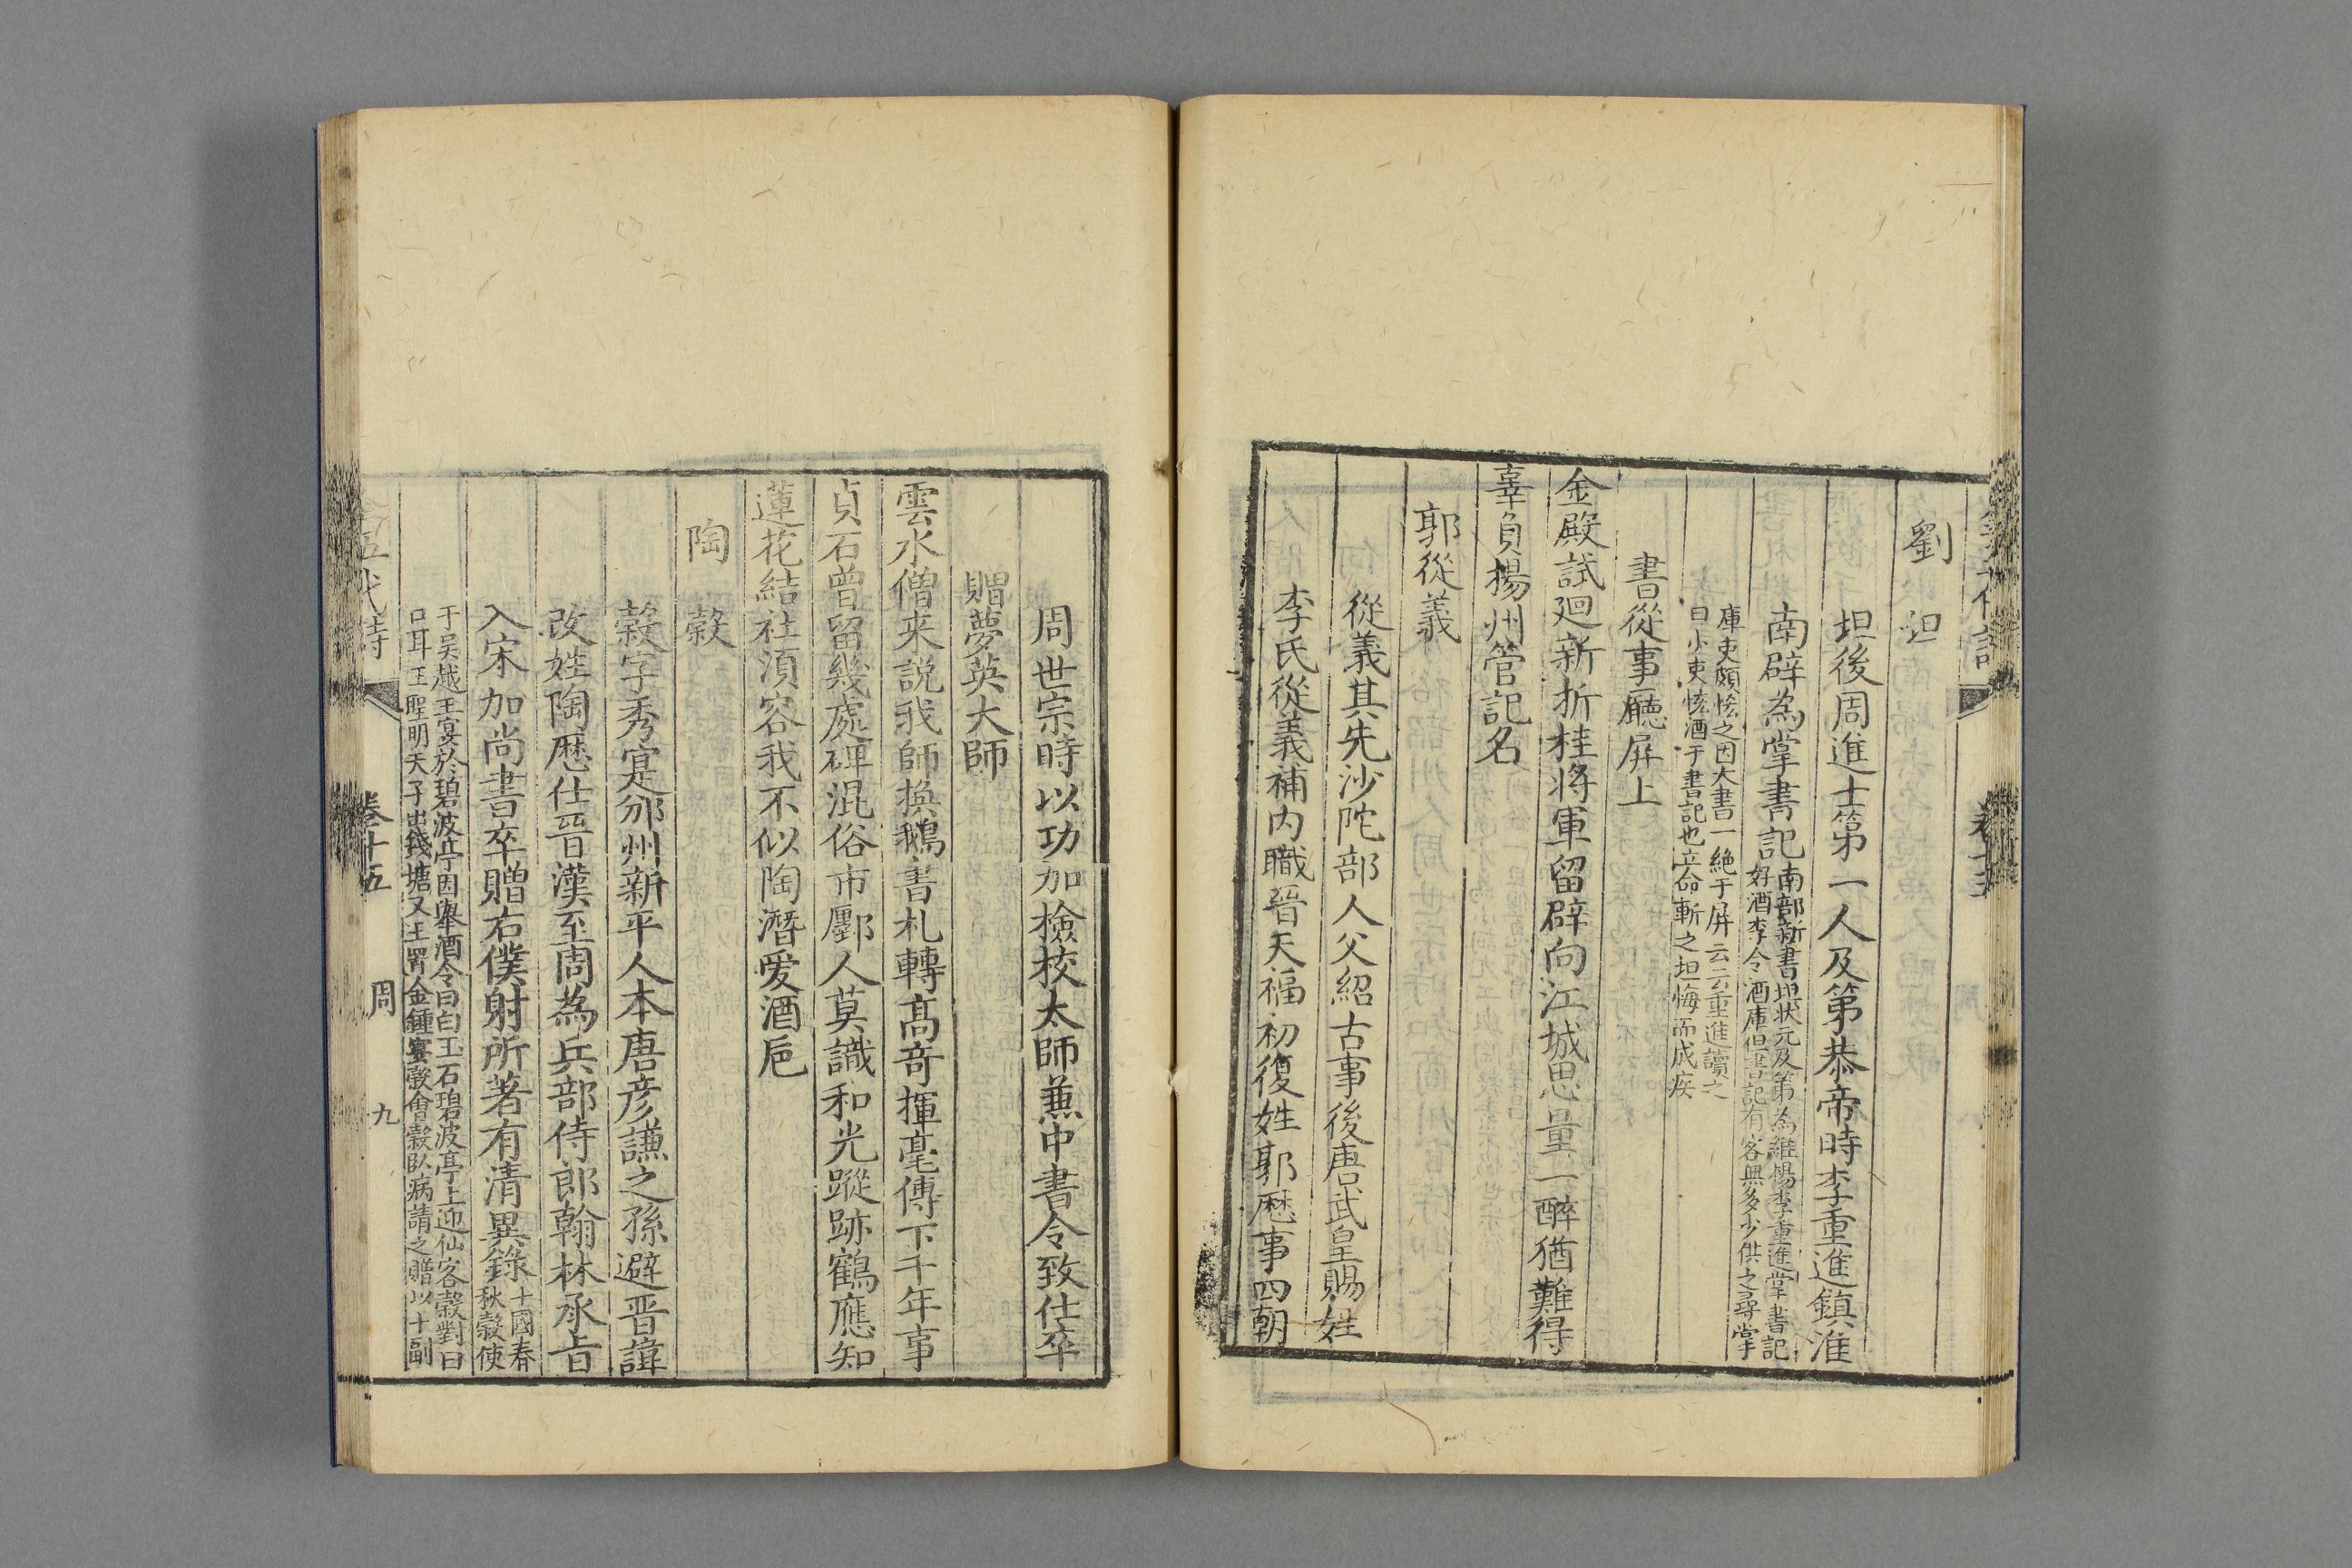 劉 坦
坦後周進士第一人及第恭帝時李重進鎮淮
南辟為掌書記南部新書坦狀元及第為維揚李重進掌書記
好酒李令酒庫但書記有客無多少供之尋掌
庫吏頗恡之因大書一絶于屏云云重進讀之
曰小吏恡酒于書記也立命斬之坦悔而成疾
書從事廳屏上
金殿試廻新折桂將軍留辟向江城思量一醉猶難得
辜負揚州管記名
郭從義
從義其先沙陀部人父紹古事後唐武皇賜姓
李氏從義補内職晉天福初復姓郭歴事四朝
周世宗時以功加檢校太師兼中書令致仕卒
贈夢英大師
雲水僧来説我師換鵝書札轉髙竒揮毫傳下千年事
貞石曾留幾處碑混俗市鄽人莫識和光蹤跡鶴應知
蓮花結社湏容我不似陶潛爱酒巵
陶 穀
穀字秀寔邠州新平人本唐彦謙之孫避晋諱
改姓陶歴仕晋漢至周為兵部侍郎翰林承旨
入宋加尚書卒贈右僕射所著有清異錄十國春
秋穀使
于吴越王宴於碧波亭因舉酒令曰白玉石碧波亭上迎仙客穀對曰
口耳王聖明天子出錢塘又王罟金鍾宴穀會穀臥病請之贈以十副
五代詩 卷十五 周 九